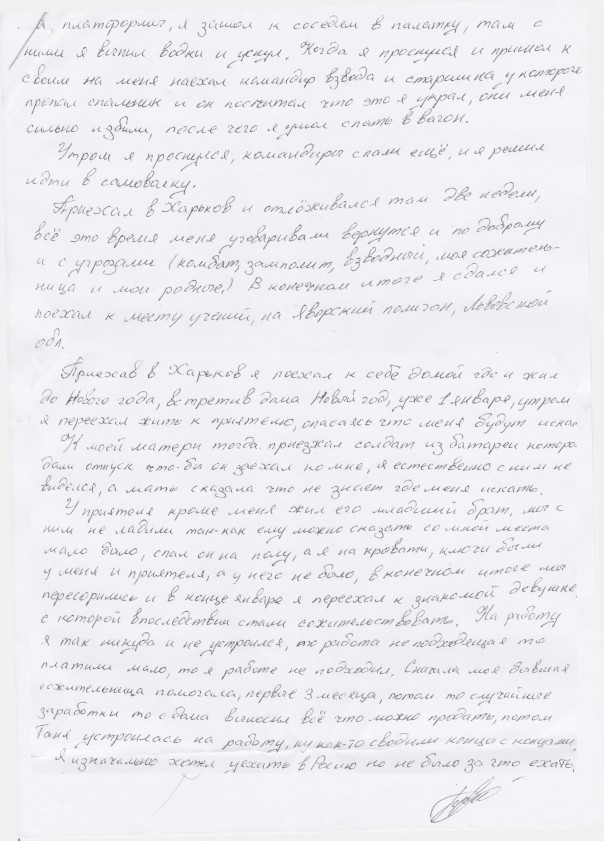 а, платформы, я зашол к соседям в палатку, там с
ними я выпил водки и уснул. Когда я проснулся и пришол к
своим на меня наехал командир взвода и старшина у которого
пропал спальник и он посчитал что это я украл, они меня
сильно избили, после чего я ушол спать в вагон.
Утром я проснулся, командиры спали ещё, и я решил
идти в самоволку.
Приехал в Харьков и отлёживался там две недели,
всё это время меня уговаривали вернутся и по доброму
и с угрозами (комбат, замполит, взводный, моя сожитель-
ница и мои родные!) В конечном итоге я сдался и
поехал к месту учений, на Яворский полигон, Львовской
обл.
Приехав в Харьков я поехал к себе домой где и жил
до Нового года, встретив дома Новый год, уже 1 января, утром
я переехал жить к приятелю, опасаясь что меня будут искат
К моей матери тогда приезжал солдат из батареи котора-
дали отпуск что-бы он заехал ко мне, я естественно с ним не
виделся, а мать сказала что не знает где меня искать.
У приятеля кроме меня жил его младший брат, мы с
ним не ладили так-как ему можно сказать со мной места
мало было, спал он на полу, а я на кровати, ключи были
у меня и приятеля, а у него не было, в конечном итоге мы
перессорились и в конце января я переехал к знакомой девушке
с которой впоследствии стали сожительствовать. На работу
я так никуда и не устроился, то работа не подходящая то
платили мало, то я работе не подходил. Сначала моя бывшая
сожительница помогала, первые 3 месяца, потом то случайные
заработки то с дома выносил всё что можно продать, потом
Таня устроилась на работу, ну как-то сводили концы с концами.
Я изначально хотел уехать в Росию но не было за что ехать.